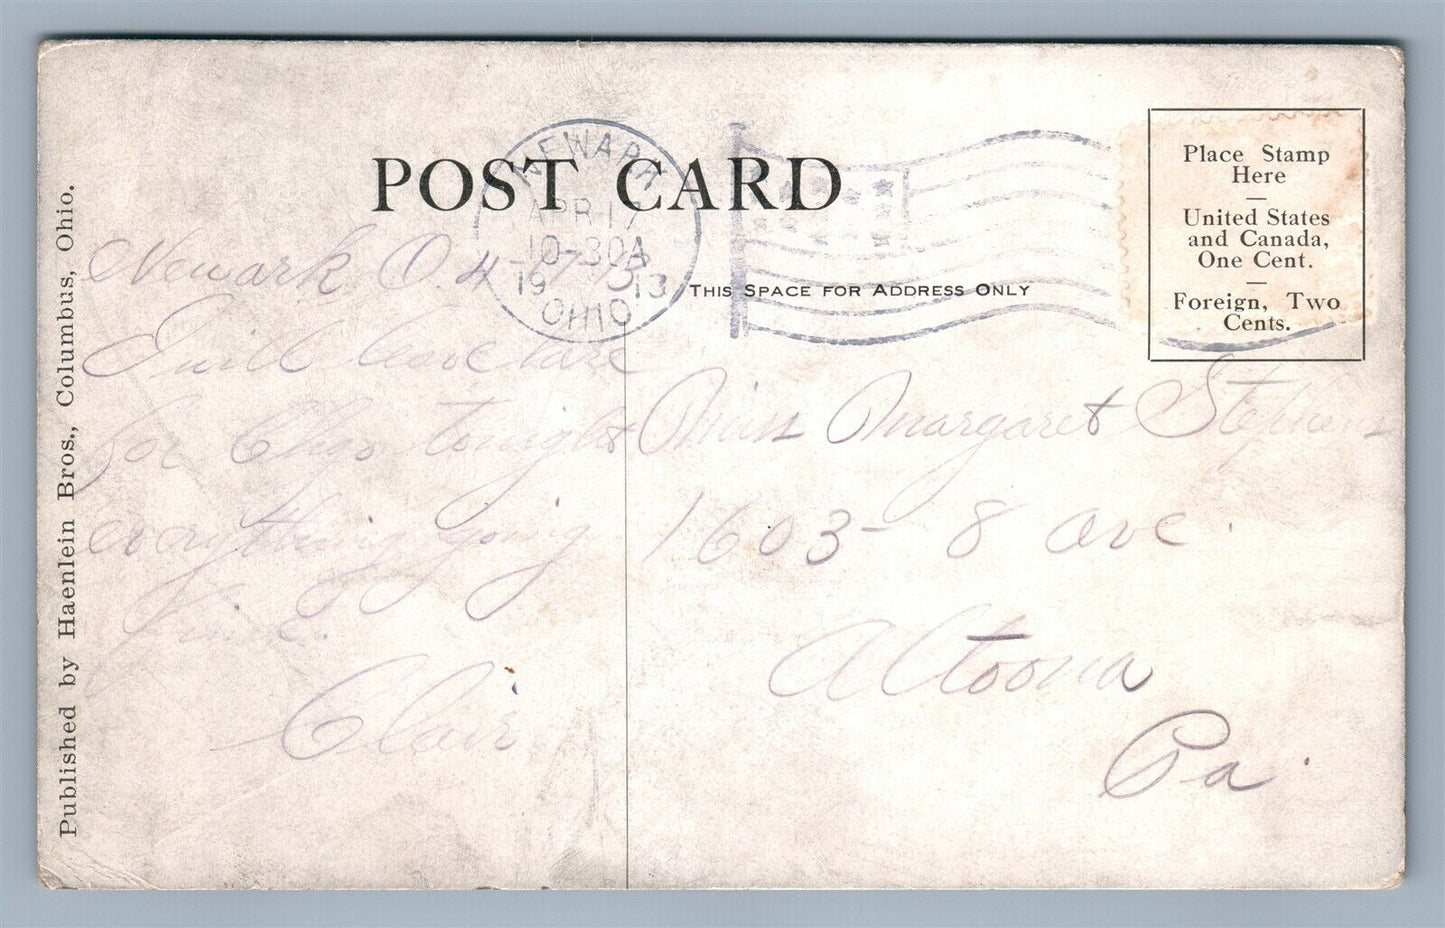 POST CARD
NEWARK
APR 17
10-30A
1913
OHIO
Place Stamp
Here
United States
and Canada,
One Cent.
Foreign, Two
Cents.
THIS SPACE FOR ADDRESS ONLY
Published by Haenlein Bros., Columbus, Ohio.
Newark O. 4
I will leave
for Chgo tonight
everything going
fine.
Clair
Miss Margaret Stephens
1603 - 8 ave.
Altoona
Pa.